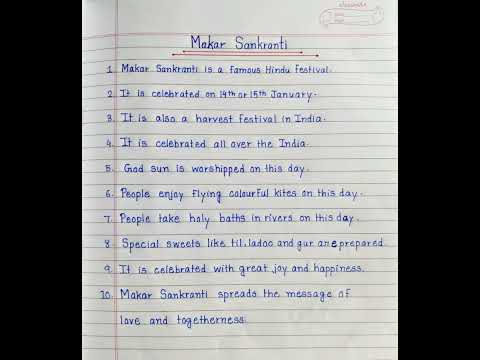 Makar Sankranti
1. Makar Sankranti is a famous Hindu Festival.
2. It is celebrated on 14th or 15th January.
3. It is also a harvest festival in India.
4. It is celebrated all over the India.
5. God sun is worshipped on this day.
6. People enjoy flying colourful kites on this day.
7. People take holy baths in rivers on this day.
8. Special sweets like til, ladoo and gur are prepared.
9. It is celebrated with great joy and happiness.
10. Makar Sankranti spreads the message of
love and togetherness.